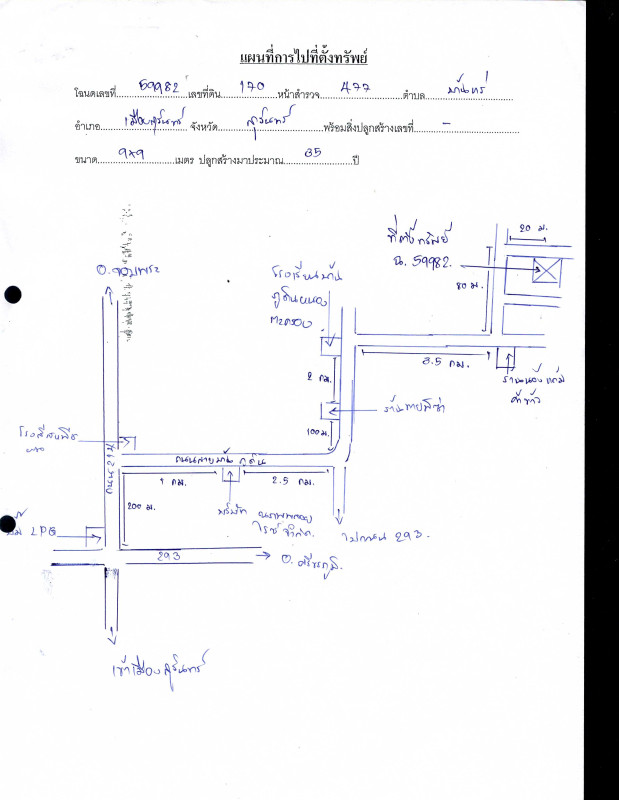 แผนที่การไปที่ตั้งทรัพย์
โฉนดเลขที่ 59982 เลขที่ดิน 170 หน้าสำรวจ 477 ตำบล
อำเภอ เมืองสุรินทร์ จังหวัด สุรินทร์ พร้อมสิ่งปลูกสร้างเลขที่ -
ขนาด 9x9 เมตร ปลูกสร้างมาประมาณ 35 ปี
20 ม.
ที่ตั้งทรัพย์
ฉ. 59982.
80 ม.
อ. จอมพระ
โรงเรียนบ้าน
ภูดินหนอง
3.5 กม.
ร้านน้อง
ค้าข้าว
2 กม.
100 ม.
ร้าน
โรงสี
ถนน 214
ถนนสายบ้าน ภูดิน
1 กม.
2.5 กม.
200 ม.
บริษัท
ไรซ์ จำกัด.
ไปถนน 293.
ปั๊ม LPG
293
อ. ศรีขรภูมิ.
เข้าเมืองสุรินทร์